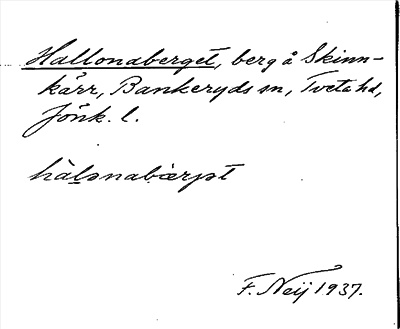 Hallonaberget, berg å Skinn-
kärr, Bankeryds sn, Tveta hd,
Jönk. l.
F. Neij 1937.